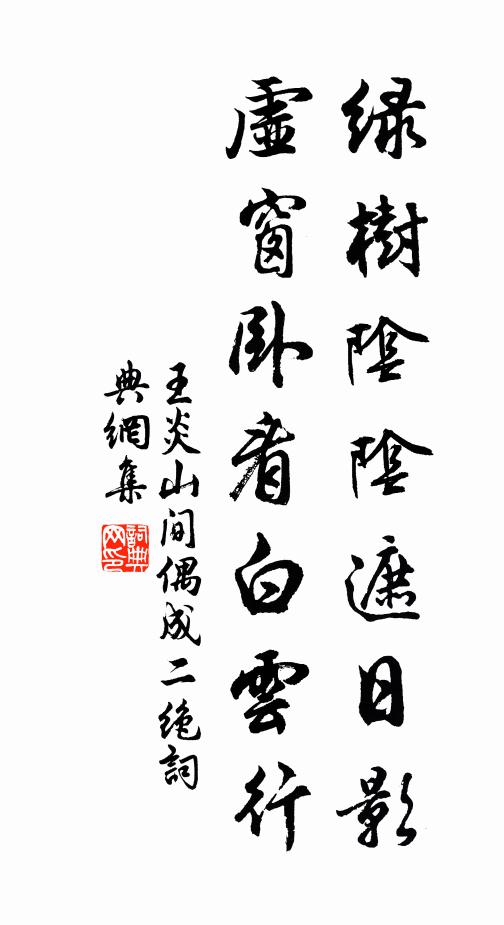 緑樹陰陰遮日影
虛窗卧看白雲行
王炎山间偶成二绝詞
典網集
詞典
网印